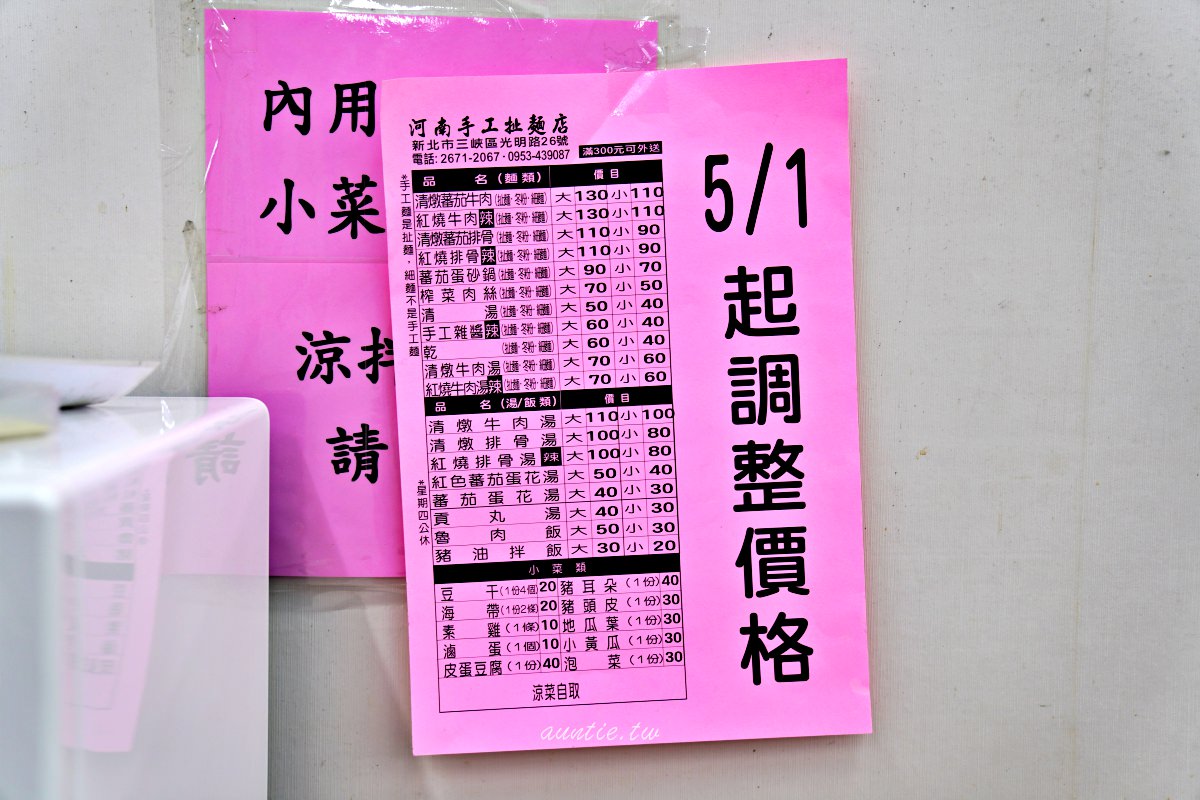 內用
小菜
涼拌
請
河南手工扯麵店
新北市三峽區光明路26號
電話: 2671-2067·0953-439087 滿300元可外送
*手工麵是扯麵，細麵不是手工麵
品 名(麵類) 價目
清燉蕃茄牛肉(扯麵·冬粉·細麵) 大130小110
紅燒牛肉辣(扯麵·冬粉·細麵) 大130小110
清燉蕃茄排骨(扯麵·冬粉·細麵) 大110小90
紅燒排骨辣(扯麵·冬粉·細麵) 大110小90
蕃茄蛋砂鍋(扯麵·冬粉·細麵) 大90小70
榨菜肉絲(扯麵·冬粉·細麵) 大70小50
清湯(扯麵·冬粉·細麵) 大50小40
手工雜醬辣(扯麵·冬粉·細麵) 大60小40
乾(扯麵·冬粉·細麵) 大60小40
清燉牛肉湯(扯麵·冬粉·細麵) 大70小60
紅燒牛肉湯辣(扯麵·冬粉·細麵) 大70小60
品 名(湯/飯類) 價目
清燉牛肉湯 大110小100
清燉排骨湯 大100小80
紅燒排骨湯辣 大100小80
紅色蕃茄蛋花湯 大50小40
蕃茄蛋花湯 大40小30
貢丸湯 大40小30
魯肉飯 大50小30
豬油拌飯 大30小20
*星期四公休
小菜類
豆干(1份4個)20 豬耳朵(1份)40
海帶(1份2條)20 豬頭皮(1份)30
素雞(1條)10 地瓜葉(1份)30
滷蛋(1個)10 小黃瓜(1份)30
皮蛋豆腐(1份)40 泡菜(1份)30
涼菜自取
5/1
起調整價格
auntie.tw